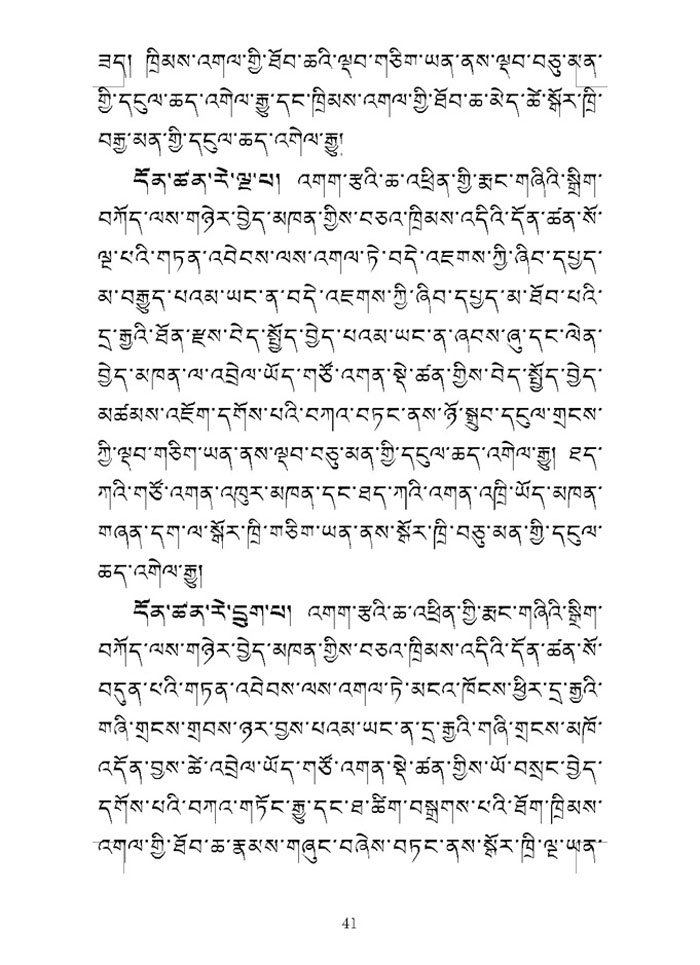 ཟད། ཁྲིམས་འགལ་གྱི་ཐོབ་ཆའི་ལྡབ་གཅིག་ཡན་ནས་ལྡབ་བཅུ་མན་
གྱི་དངུལ་ཆད་འགེལ་རྒྱུ་དང་ཁྲིམས་འགལ་གྱི་ཐོབ་ཆ་མེད་ཚེ་སྒོར་ཁྲི་
བརྒྱ་མན་གྱི་དངུལ་ཆད་འགེལ་རྒྱུ།
དོན་ཚན་རེ་ལྔ་པ། འགག་རྩའི་ཆ་འཕྲིན་གྱི་རྨང་གཞིའི་སྒྲིག་
བཀོད་ལས་གཉེར་བྱེད་མཁན་གྱིས་བཅའ་ཁྲིམས་འདིའི་དོན་ཚན་སོ་
ལྔ་པའི་གཏན་འབེབས་ལས་འགལ་ཏེ་བདེ་འཇགས་ཀྱི་ཞིབ་དཔྱད་
མ་བརྒྱུད་པའམ་ཡང་ན་བདེ་འཇགས་ཀྱི་ཞིབ་དཔྱད་མ་ཐོབ་པའི་
དྲ་རྒྱའི་ཐོན་རྫས་བེད་སྤྱོད་བྱེད་པའམ་ཡང་ན་ཞབས་ཞུ་དང་ལེན་
བྱེད་མཁན་ལ་འབྲེལ་ཡོད་གཙོ་འགན་སྡེ་ཚན་གྱིས་བེད་སྤྱོད་བྱེད་
མཚམས་འཇོག་དགོས་པའི་བཀའ་བཏང་ནས་ཉོ་སྒྲུབ་དངུལ་གྲངས་
ཀྱི་ལྡབ་གཅིག་ཡན་ནས་ལྡབ་བཅུ་མན་གྱི་དངུལ་ཆད་འགེལ་རྒྱུ། ཐད་
ཀའི་གཙོ་འགན་འཁུར་མཁན་དང་ཐད་ཀའི་འགན་འཁྲི་ཡོད་མཁན་
གཞན་དག་ལ་སྒོར་ཁྲི་གཅིག་ཡན་ནས་སྒོར་ཁྲི་བཅུ་མན་གྱི་དངུལ་
ཆད་འགེལ་རྒྱུ།
དོན་ཚན་རེ་དྲུག་པ། འགག་རྩའི་ཆ་འཕྲིན་གྱི་རྨང་གཞིའི་སྒྲིག་
བཀོད་ལས་གཉེར་བྱེད་མཁན་གྱིས་བཅའ་ཁྲིམས་འདིའི་དོན་ཚན་སོ་
བདུན་པའི་གཏན་འབེབས་ལས་འགལ་ཏེ་མངའ་ཁོངས་ཕྱིར་དྲ་རྒྱའི་
གཞི་གྲངས་གྲབས་ཉར་བྱས་པའམ་ཡང་ན་དྲ་རྒྱའི་གཞི་གྲངས་མཁོ་
འདོན་བྱས་ཚེ་འབྲེལ་ཡོད་གཙོ་འགན་སྡེ་ཚན་གྱིས་ཡོ་བསྲང་བྱེད་
དགོས་པའི་བཀའ་གཏོང་རྒྱུ་དང་ཐ་ཚིག་བསྒྲགས་པའི་ཐོག་ཁྲིམས་
འགལ་གྱི་ཐོབ་ཆ་རྣམས་གཞུང་བཞེས་བཏང་ནས་སྒོར་ཁྲི་ལྔ་ཡན་
41